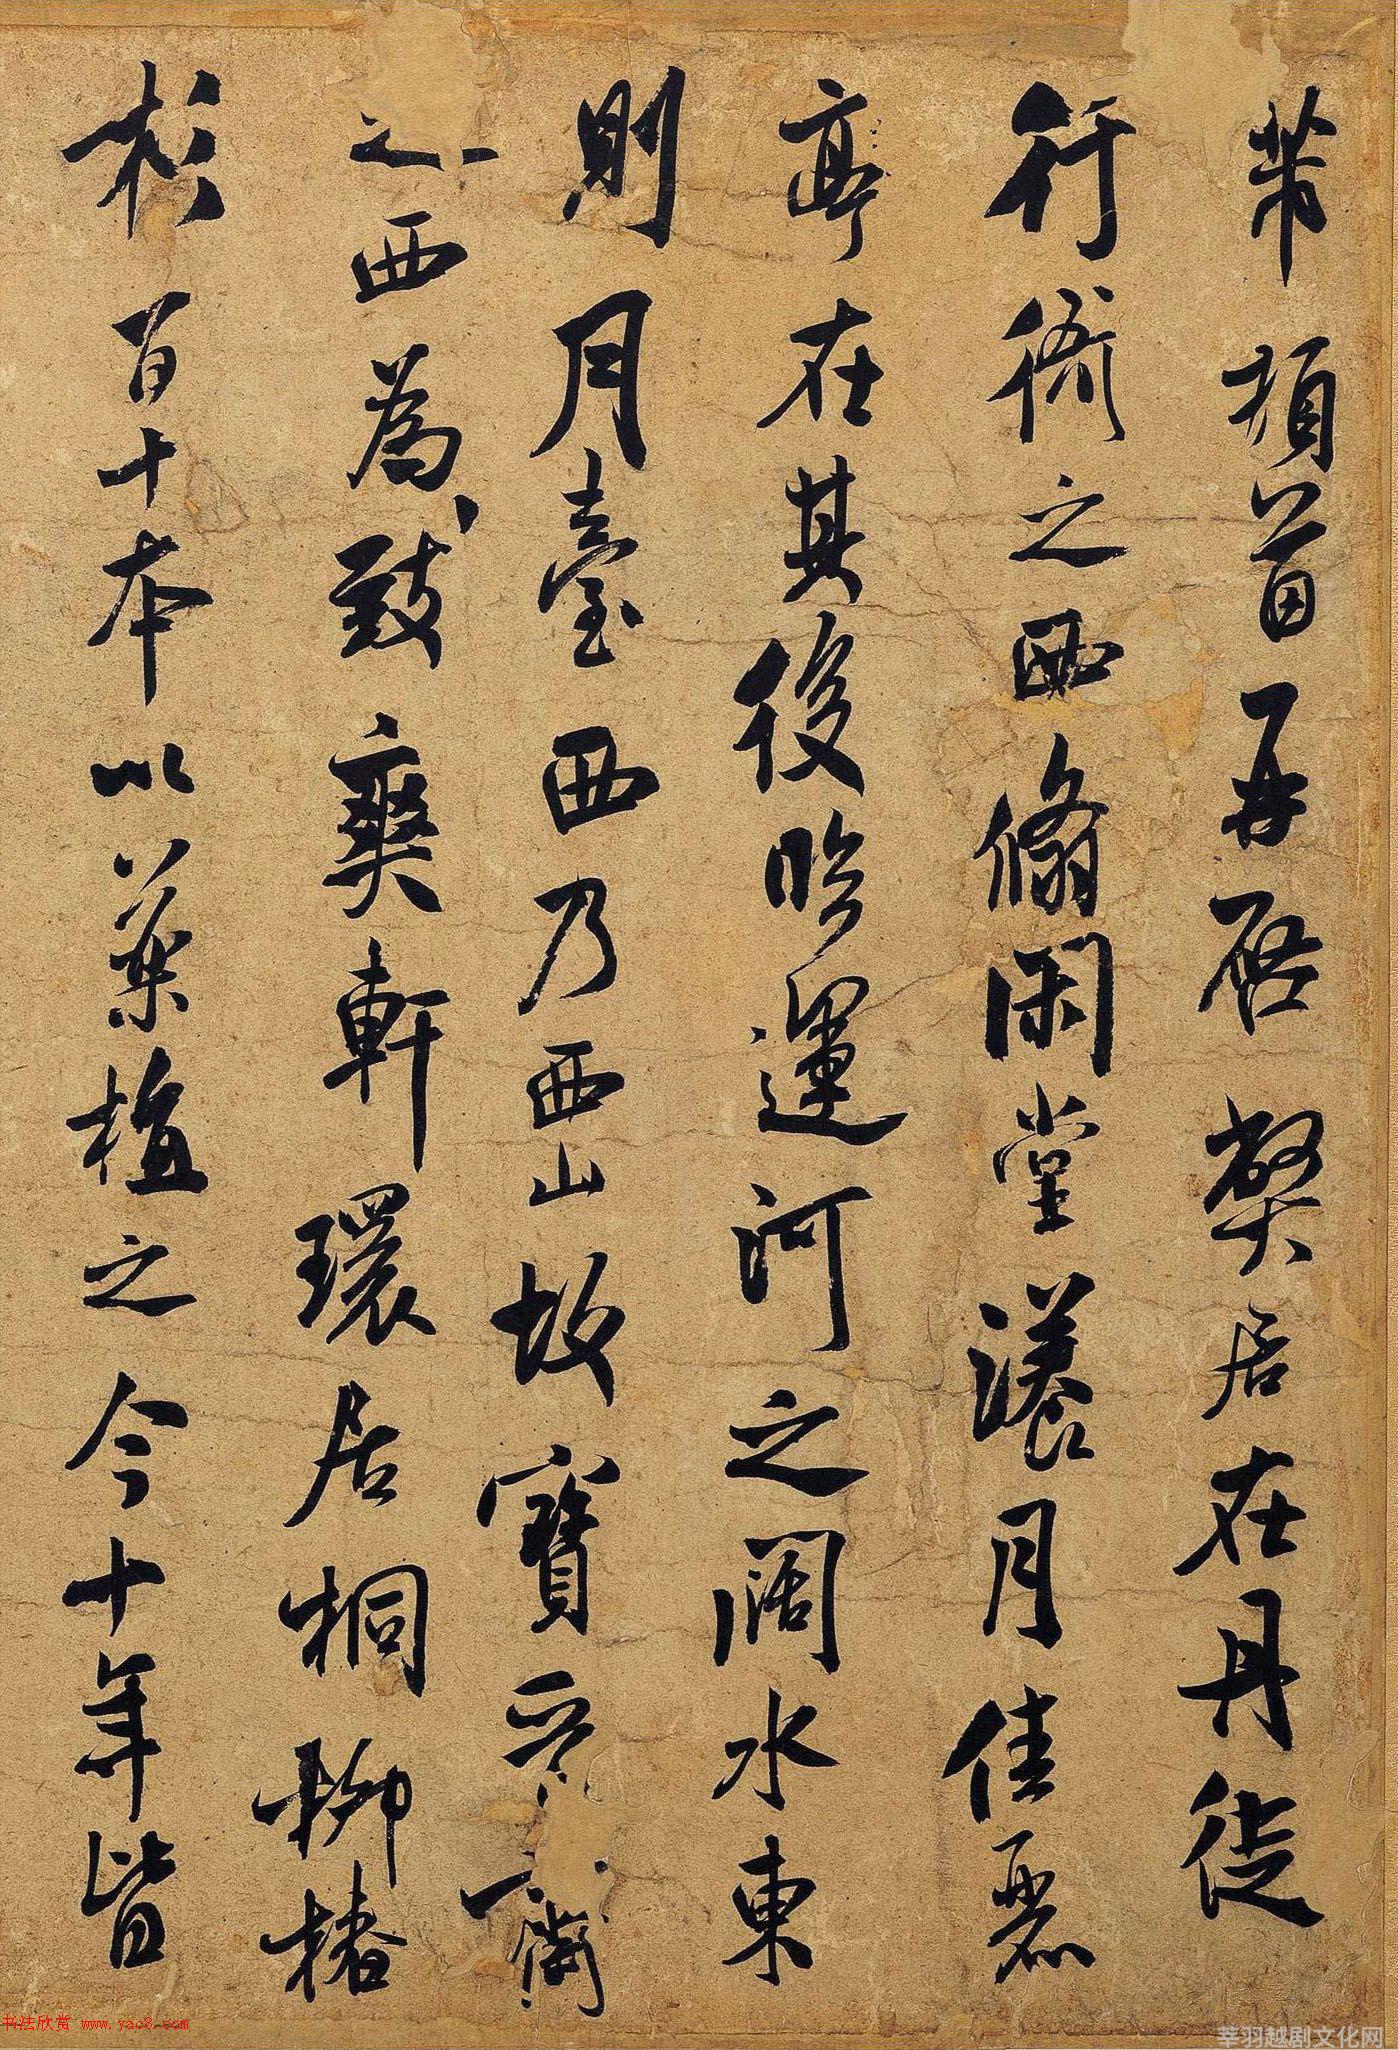 芾頓首再啓弊居在丹徒
行衙之西翛閑堂漾月佳麗
亭在其後臨運河之闊水東
則月臺西乃西山故寶晉齋
之西為致爽軒環居桐柳椿
杉百十本以藥植之今十年皆
书法欣赏 www.yac8.com
莘羽越剧文化网